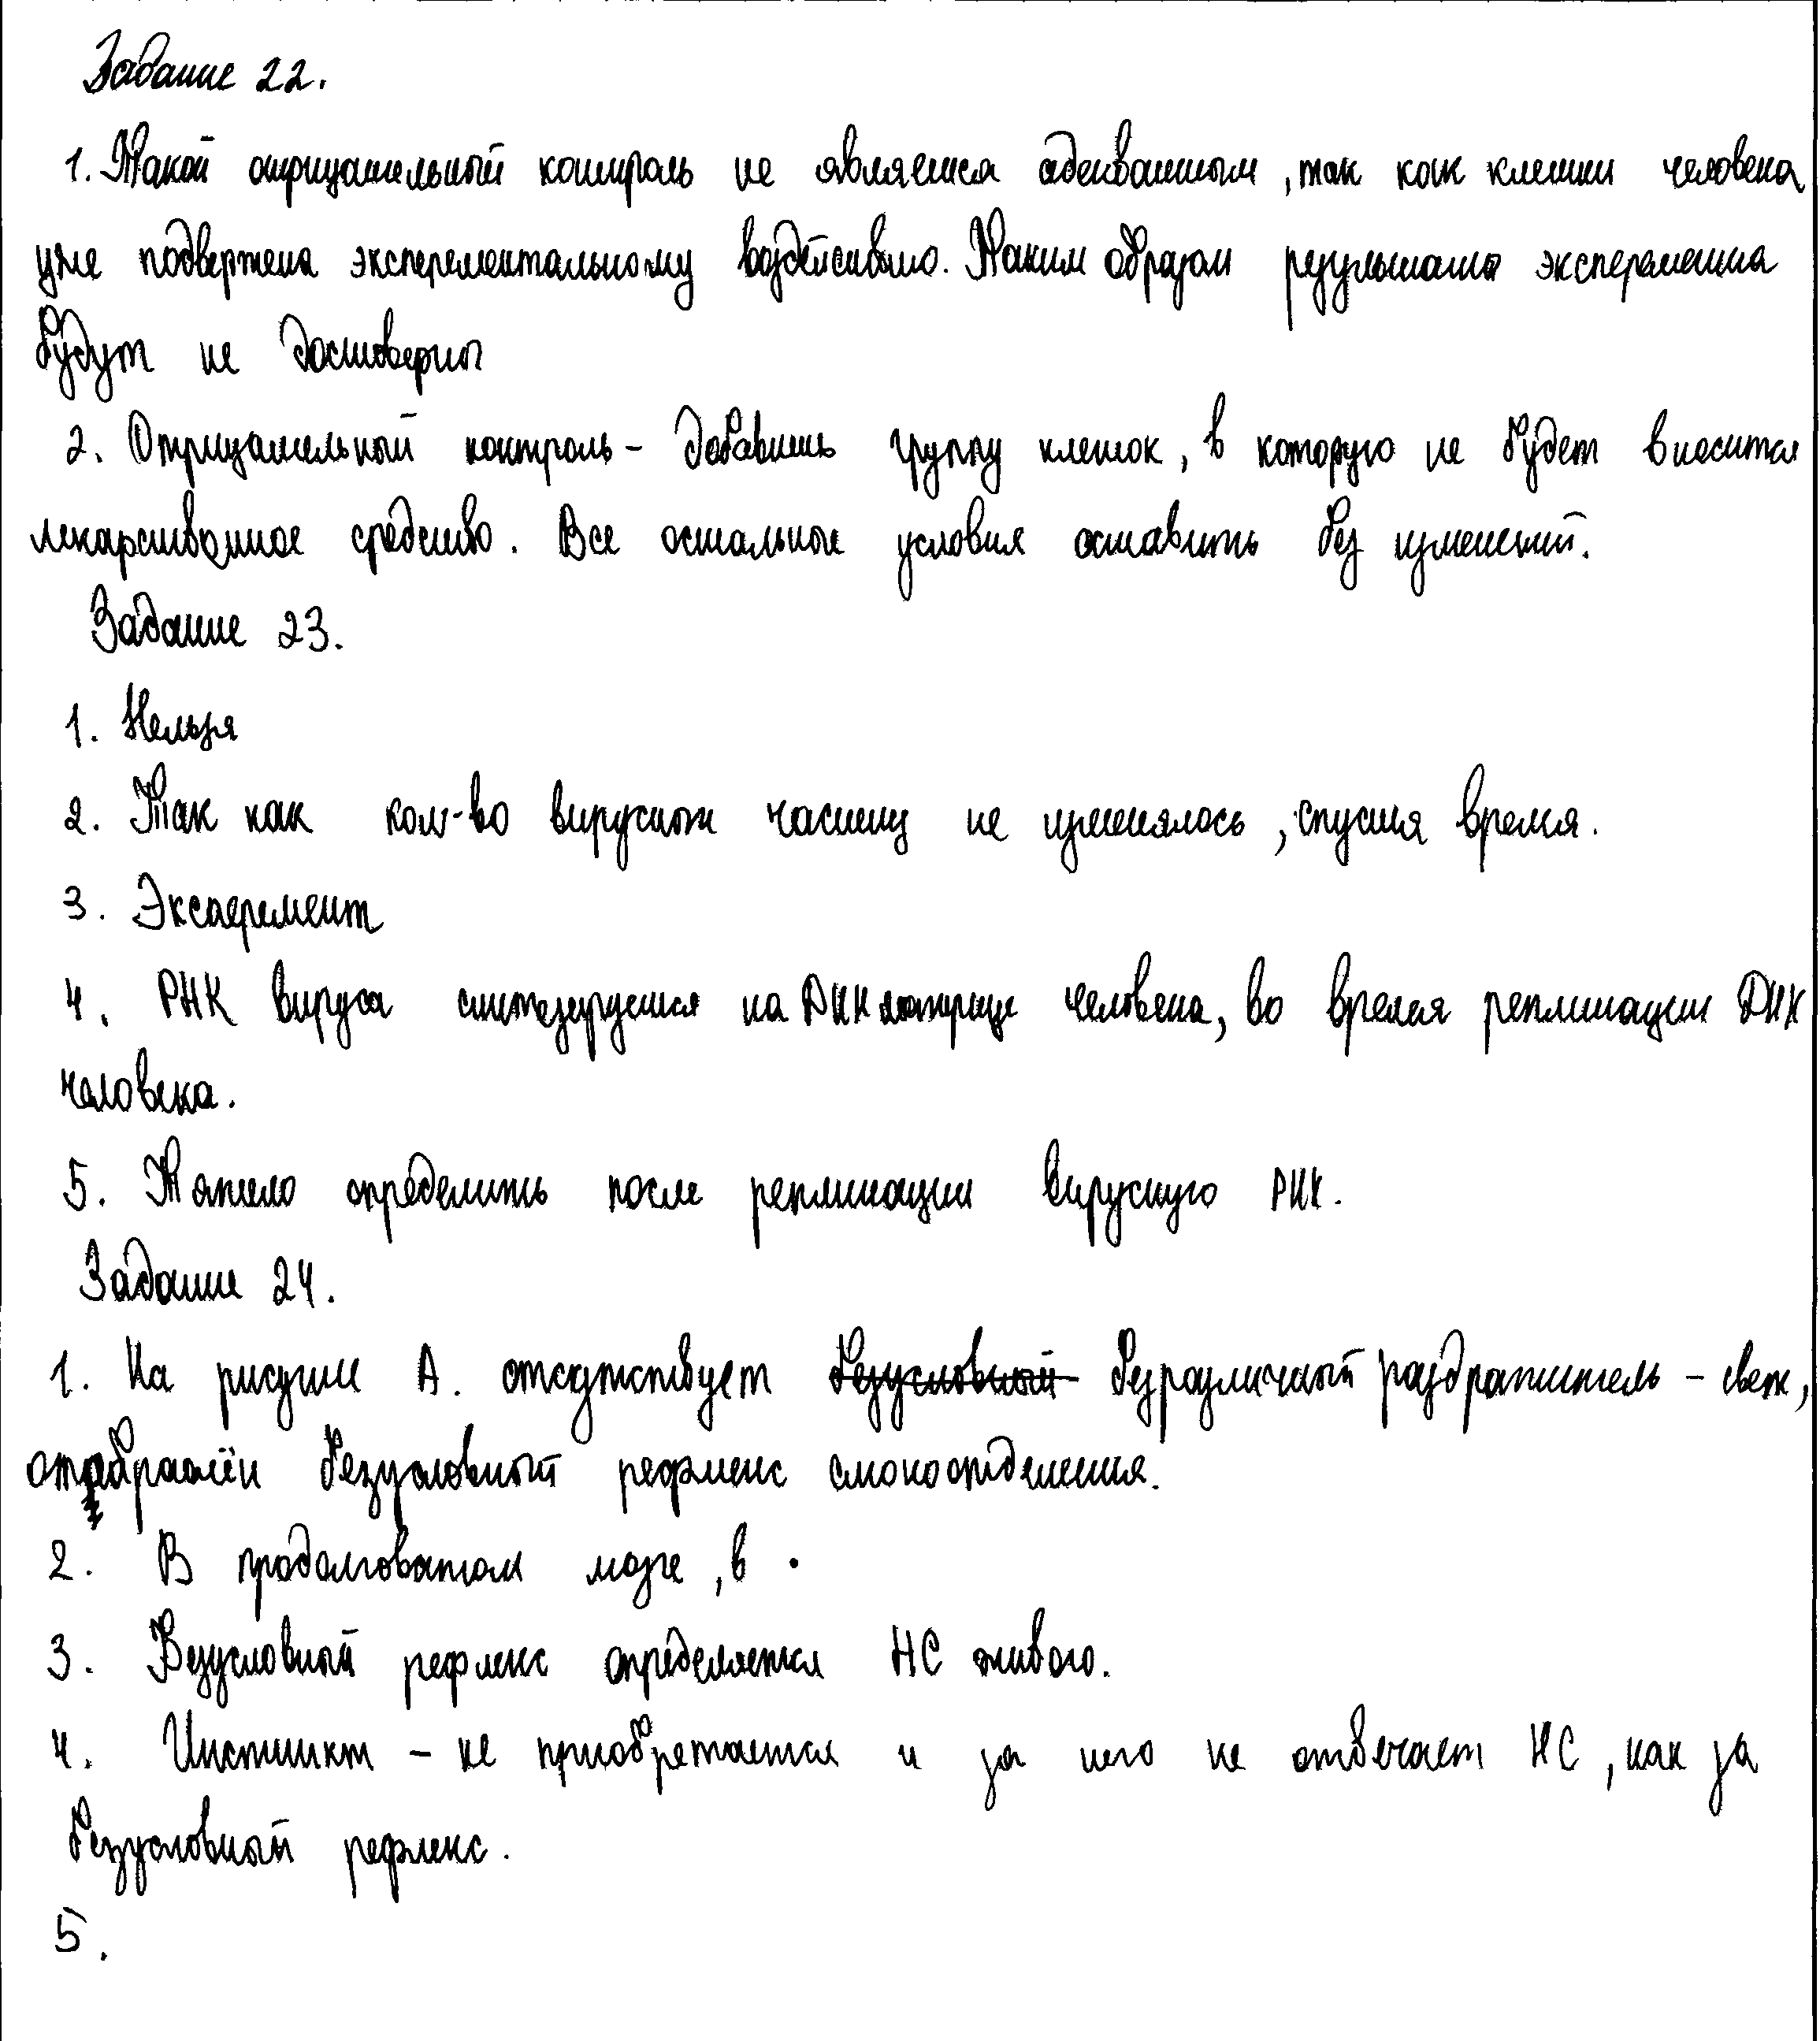 Задание 22.
1. Такой отрицательный контроль не является адекватным, так как клетки человека
уже подвержена эксперементальному воздействию. Таким образом результаты эксперемента
будут не достоверны
2. Отрицательный контроль - добавить группу клеток, в которую не будет вносится
лекарственное средство. Все остальные условия оставить без изменений.
Задание 23.
1. Нельзя
2. Так как кол-во вирусных частиц не изменялось, спустя время.
3. Эксперемент
4. РНК вируса синтезируется на ДНК матрице человека, во время репликации ДНК
человека.
5. Тяжело определить после репликации вирусную РНК.
Задание 24.
1. На рисунке А. отсутствует безусловный безразличный раздражитель - свет,
отображён безусловный рефлекс слюноотделения.
2. В продолговатом мозге, в .
3. Безусловный рефлекс определяется НС живого.
4. Инстинкт - не приобретается и за него не отвечает НС, как за
безусловный рефлекс.
5.